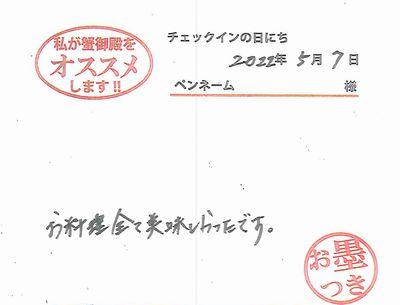 私が蟹御殿を
オススメ
します!!
チェックインの日にち
2022年 5月 7日
ペンネーム 様
お料理全て美味しかったです。
お墨
つき